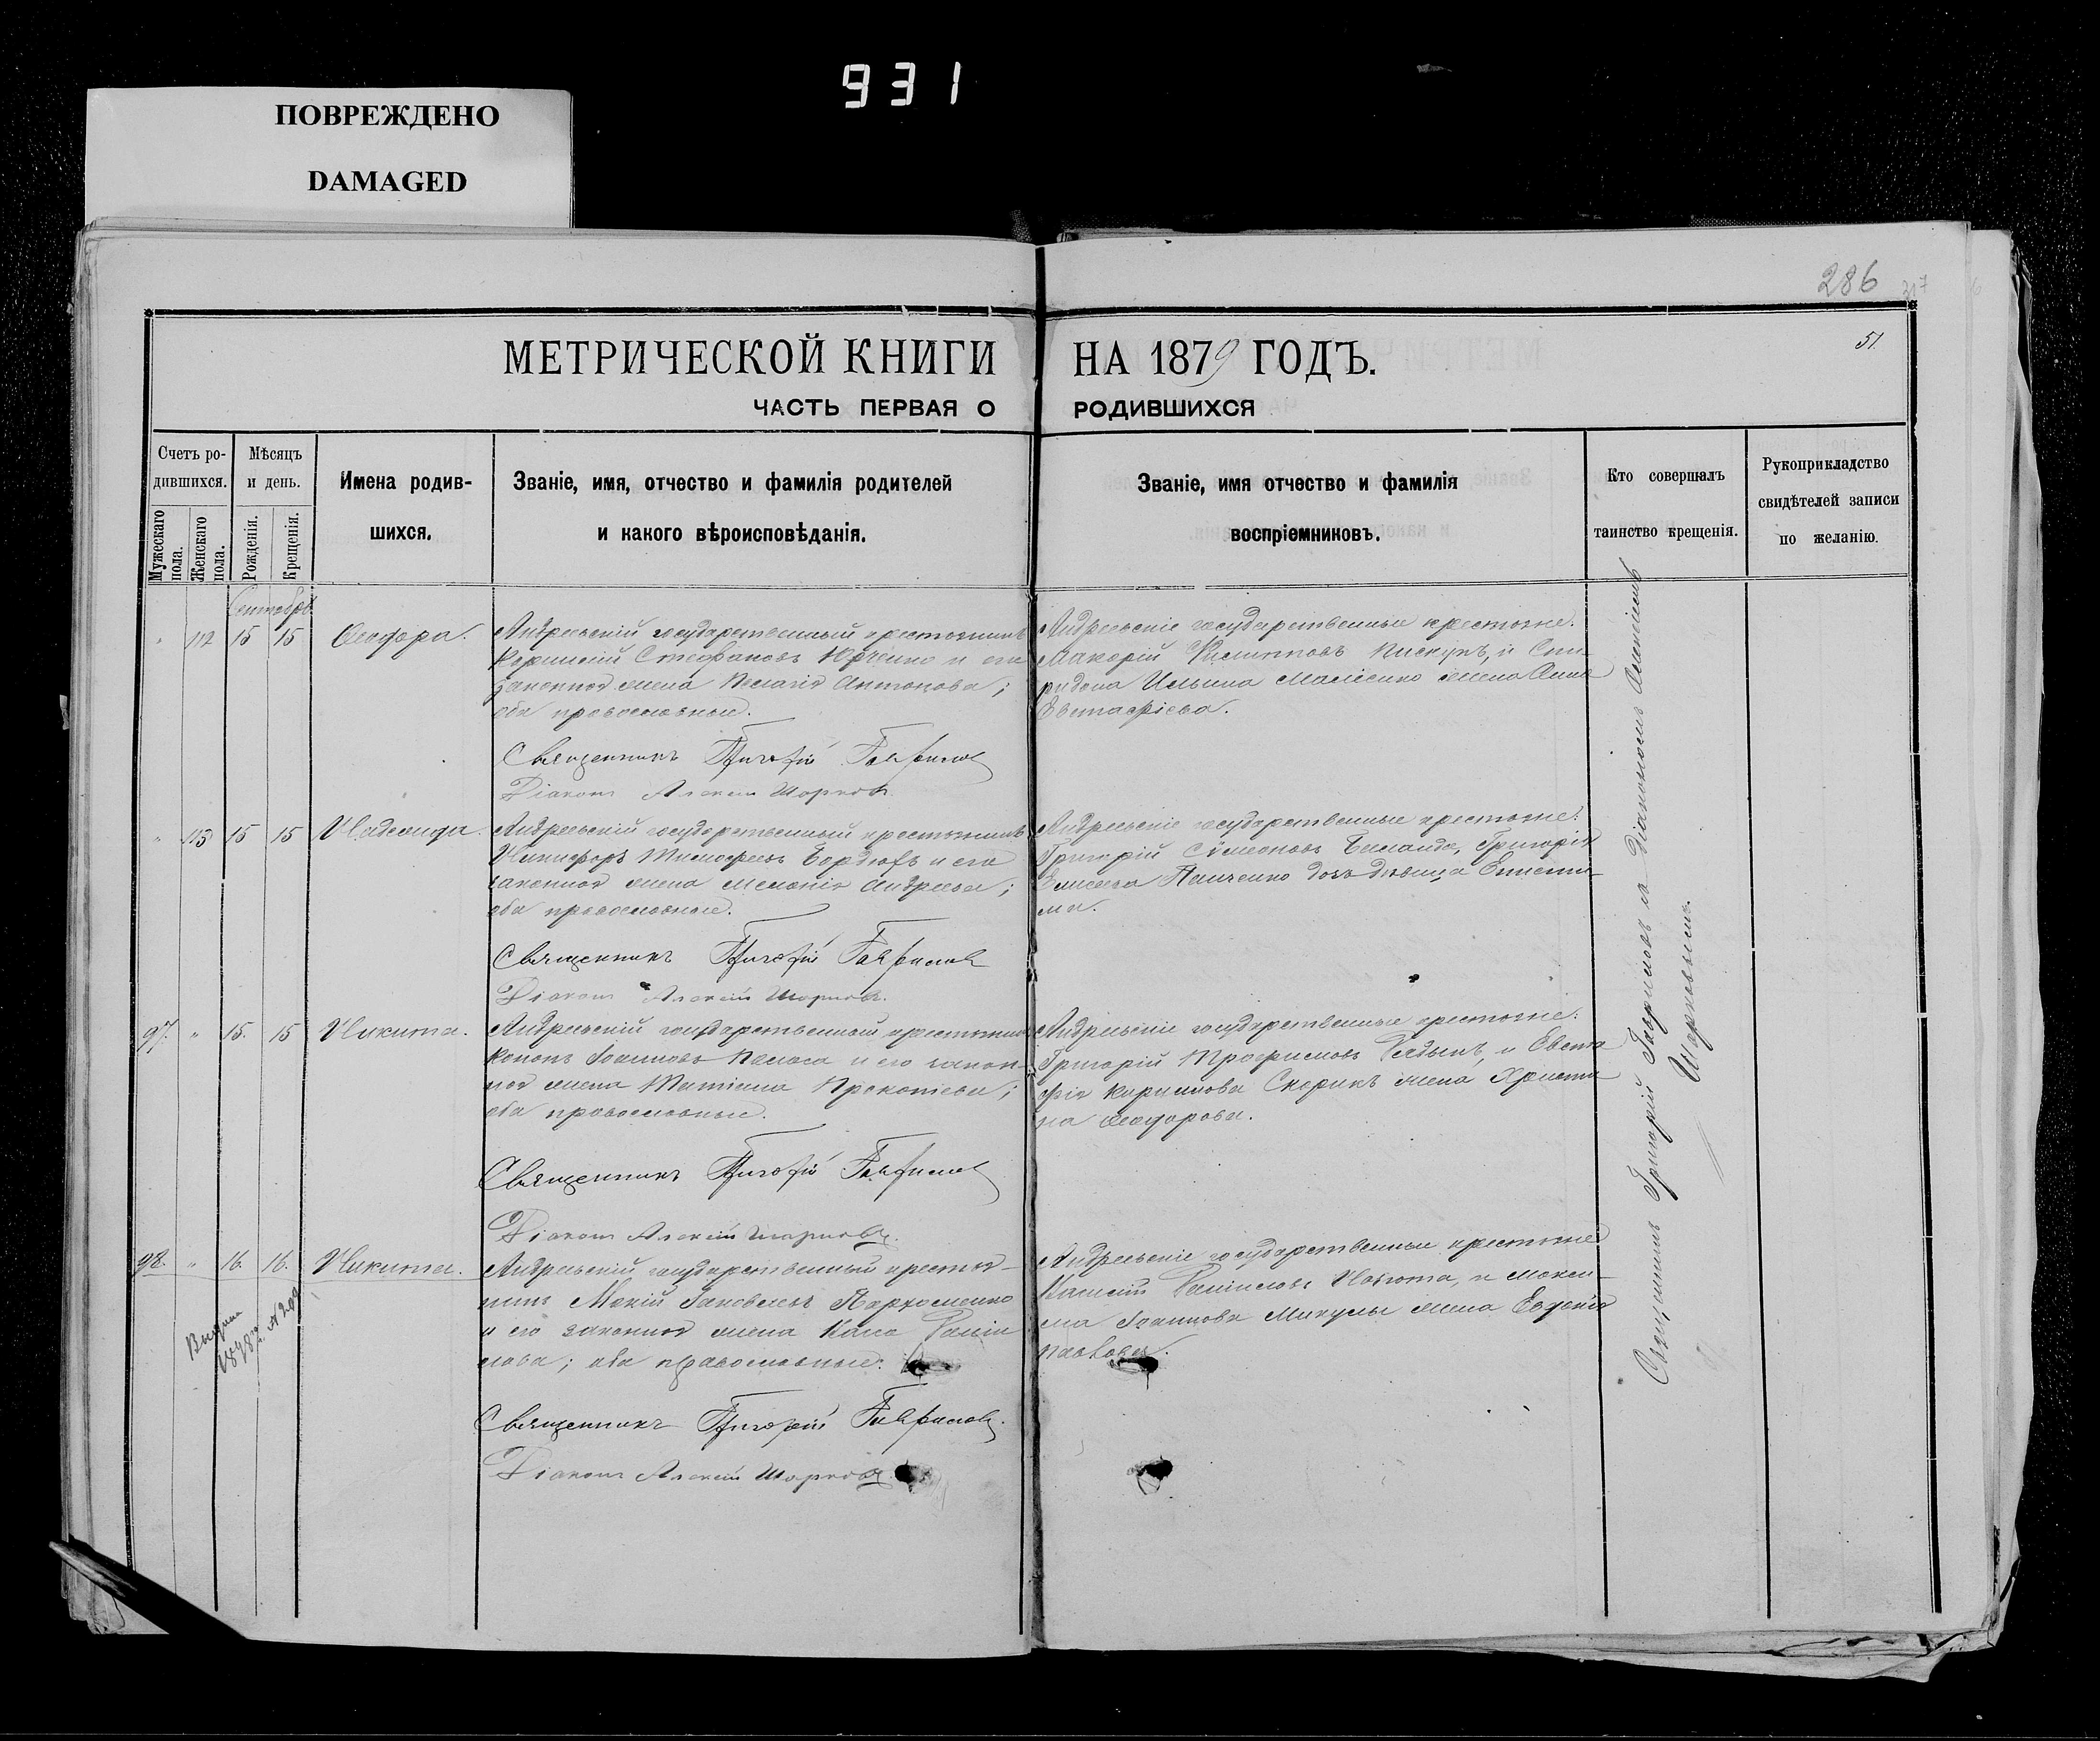 931
ПОВРЕЖДЕНО
DAMAGED
286
51.
МЕТРИЧЕСКОЙ КНИГИ НА 1879 ГОДЪ.
ЧАСТЬ ПЕРВАЯ О РОДИВШИХСЯ
Счетъ ро-
дившихся.
Мужескаго пола.
Женскаго пола.
Мѣсяцъ
и день.
Рожденія.
Крещенія.
Имена родив-
шихся.
Званіе, имя, отчество и фамилія родителей
и какого вѣроисповѣданія.
Званіе, имя отчество и фамилія
воспріемниковъ.
Кто совершалъ
таинство крещенія.
Рукоприкладство
свидѣтелей записи
по желанію.
Сентябрь
" 112 15 15 Ѳеодора.
Андреевскій государственный крестьянинъ
Стефановъ Юрченко и его
законная жена Пелагія Антонова;
оба православные.
Священникъ Григорій Гавриловъ
Діаконъ Алексій Шарковъ
Андреевскіе государственные крестьяне:
Макарій Филипповъ Пискунъ, и Спи-
ридона Ильина жена Анна
Евстафіева.
" 113 15 15
Андреевскій государственный крестьянинъ
Никифоръ Тимофеевъ и его
законная жена Меланія Андреева;
оба православные.
Священникъ Григорій Гавриловъ
Діаконъ Алексій Шарковъ.
Андреевскіе государственные крестьяне:
Григорій Сѵмеоновъ Григорія
Елисеева Панченко дочь дѣвица Еписти-
ма.
97. " 15. 15 Никита.
Андреевскій государственный крестьянинъ
Кононъ Іоанновъ и его закон-
ная жена Татіана Прокопіева;
оба православные.
Священникъ Григорій Гавриловъ
Діаконъ Алексій Шарковъ.
Андреевскіе государственные крестьяне:
Григорій Трофимовъ и Евста-
фія Кириллова Скорикъ жена Христи-
на Ѳеодорова.
98. " 16. 16. Никита.
Андреевскій государственный крестья-
нинъ Мокій Іаковлевъ Пархоменко
и его законная жена Даніи-
лова; оба православные.
Священникъ Григорій Гавриловъ.
Діаконъ Алексій Шарковъ.
Андреевскіе государственные крестьяне
Даніиловъ и Макси-
ма Іоаннова Микулы жена Евдокія
Павлова.
Священникъ Григорій Гавриловъ съ Діакономъ Алексіемъ
Шарковымъ.